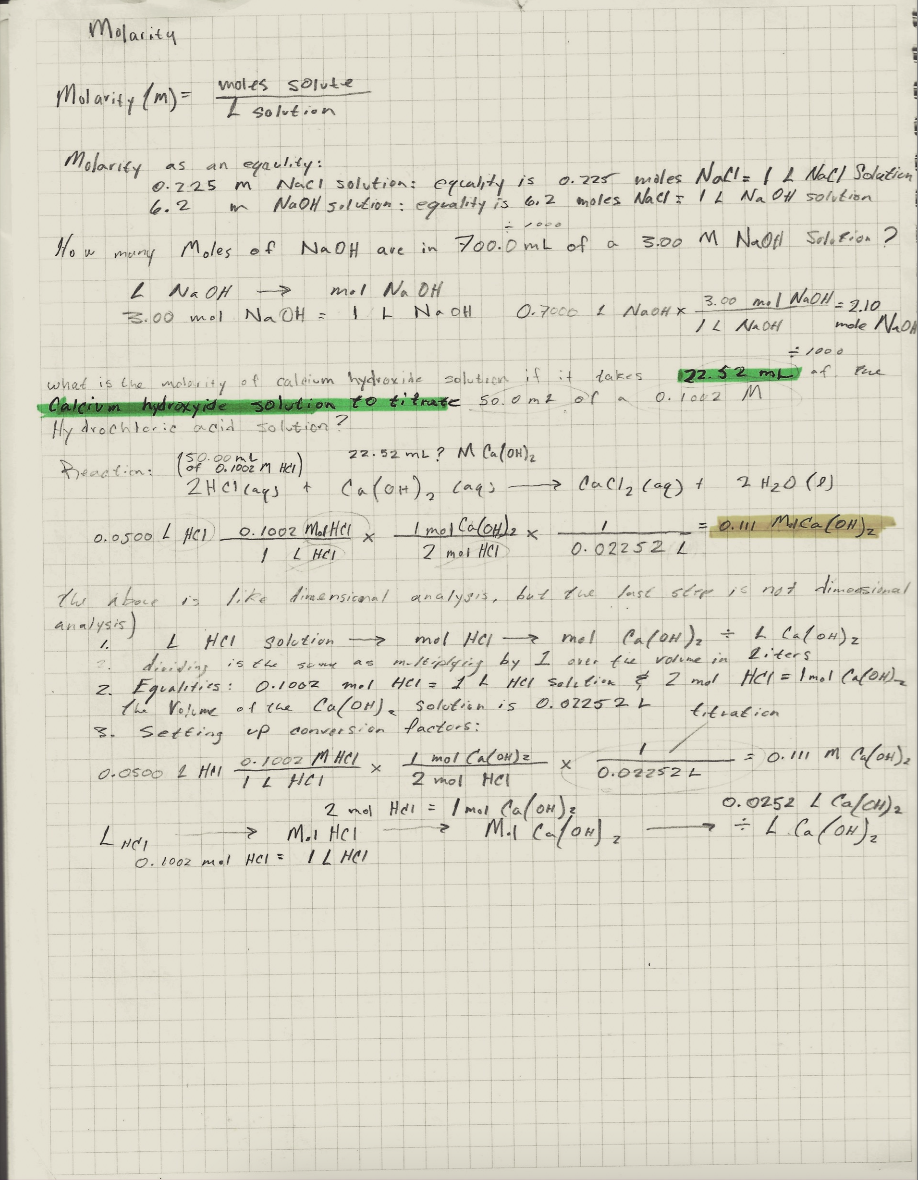 Molarity
Molarity (m) = moles solute / L solution
Molarity as an eqaulity:
0.225 m NaCl solution: equality is 0.225 moles NaCl = 1 L NaCl Solution
6.2 m NaOH solution: equality is 6.2 moles NaCl = 1 L NaOH solution
÷ 1000
How many Moles of NaOH are in 700.0 mL of a 3.00 M NaOH Solution?
L NaOH → mol NaOH
3.00 mol NaOH = 1 L NaOH 0.7000 L NaOH × 3.00 mol NaOH / 1 L NaOH = 2.10 mole NaOH
÷ 1000
what is the molarity of calcium hydroxide solution if it takes 22.52 mL of the
Calcium hydroxyide solution to titrate 50.0 mL of a 0.1002 M
Hydrochloric acid solution?
Reaction: (50.00 mL of 0.1002 M HCl) 22.52 mL? M Ca(OH)₂
2HCl (aq) + Ca(OH)₂ (aq) → CaCl₂ (aq) + 2 H₂O (l)
0.0500 L HCl) 0.1002 Mol HCl / 1 L HCl × 1 mol Ca(OH)₂ / 2 mol HCl × 1 / 0.02252 L = 0.111 Mol Ca(OH)₂
the above is like dimensional analysis, but the last step is not dimensional
analysis)
1. L HCl solution → mol HCl → mol Ca(OH)₂ ÷ L Ca(OH)₂
2. dividing is the same as multiplying by 1 over the volume in liters
2. Equalities: 0.1002 mol HCl = 1 L HCl solution & 2 mol HCl = 1 mol Ca(OH)₂
the Volume of the Ca(OH)₂ solution is 0.02252 L
titration
3. Setting up conversion factors:
0.0500 L HCl 0.1002 M HCl / 1 L HCl × 1 mol Ca(OH)₂ / 2 mol HCl × 1 / 0.02252 L = 0.111 M Ca(OH)₂
2 mol HCl = 1 mol Ca(OH)₂ 0.0252 L Ca(OH)₂
L HCl → Mol HCl → Mol Ca(OH)₂ → ÷ L Ca(OH)₂
0.1002 mol HCl = 1 L HCl